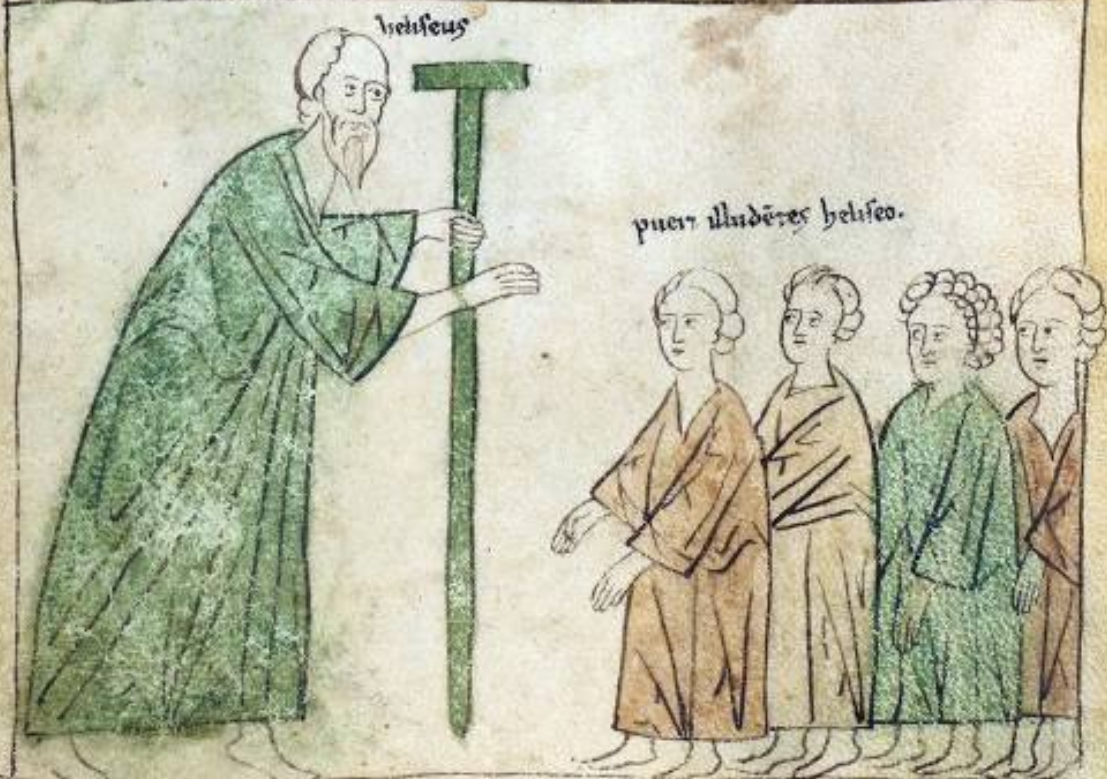 heliseus
pueri illudētes heliseo.